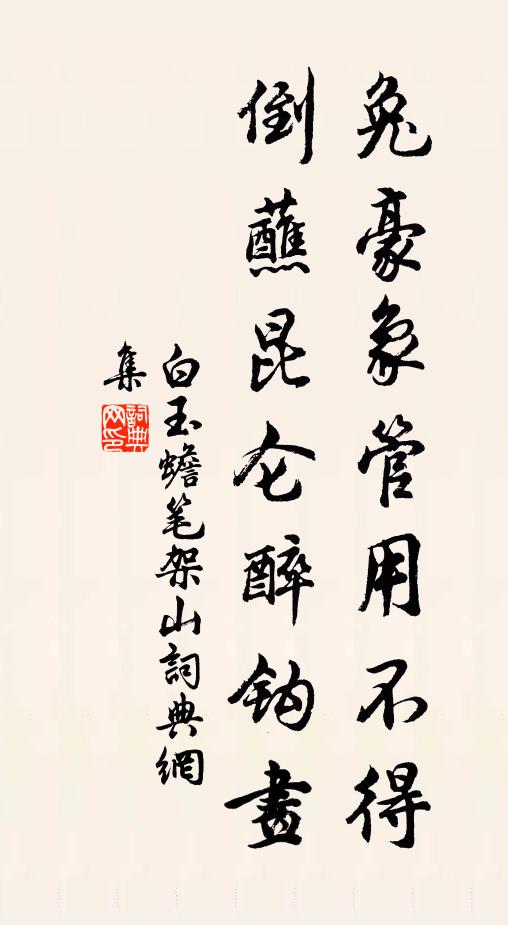 兔豪象管用不得
倒蘸昆仑醉钩畫
白玉蟾笔架山詞典網
集
詞典
网印